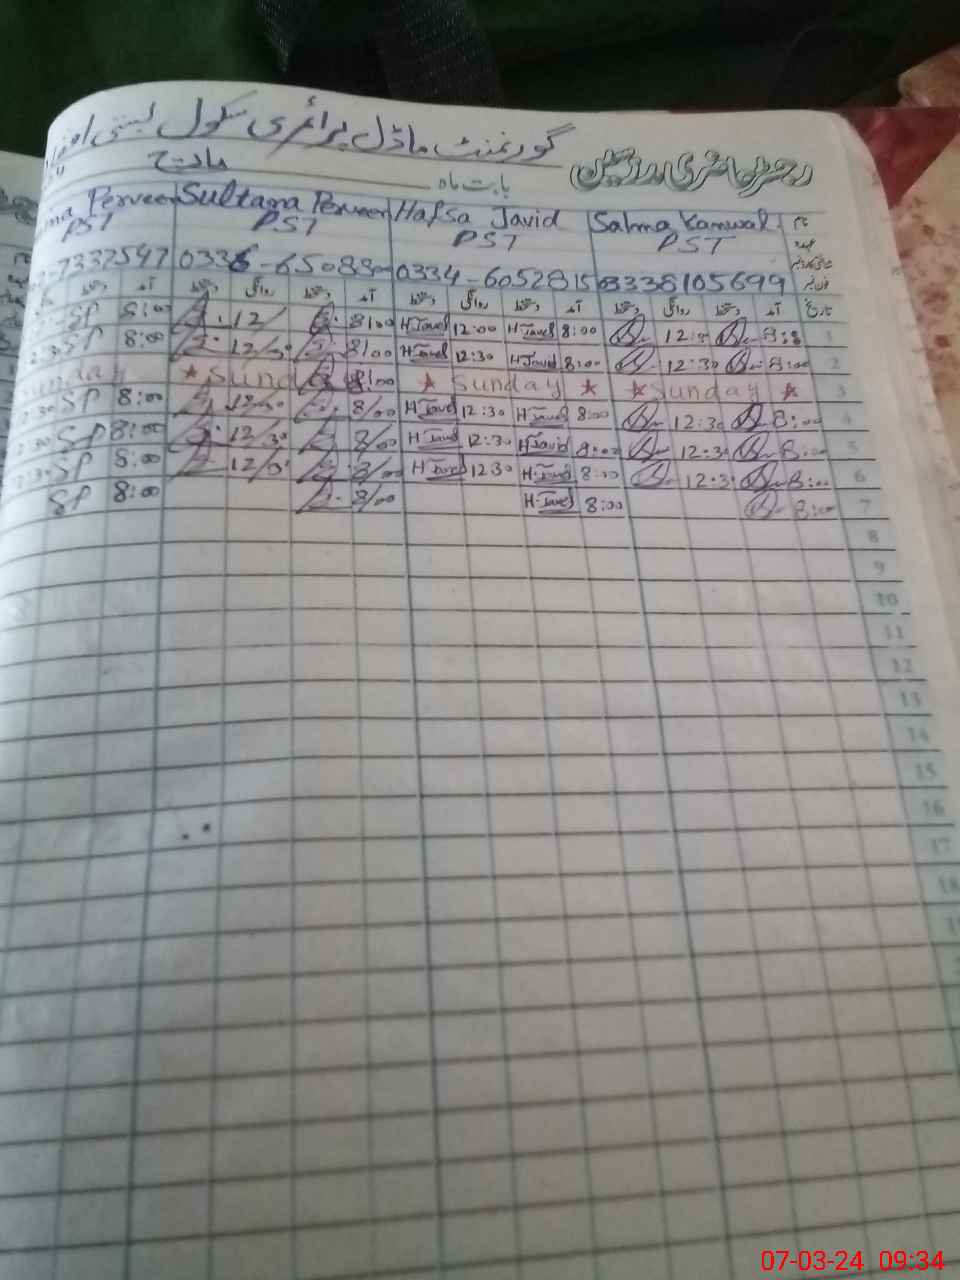 گورنمنٹ ماڈل پرائمری سکول بستی
رجسٹر حاضری مدرسین
بابت ماہ مارچ
Perveen Sultana Perveen Hafsa Javid Salma Kanwal نام
PST PST PST PST عہدہ
7337547 0334-6052815 03338105699
آمد دستخط روانگی دستخط آمد دستخط روانگی دستخط آمد دستخط روانگی دستخط آمد تاریخ
SP 8:00 12/ 8/00 H.Javed 12:00 H.Javed 8:00 1
SP 8:00 12/30 8/00 H.Javed 12:30 H.Javed 8:00 12:30 8:00 2
Sunday ★ Sund 8/00 ★ Sunday ★ ★ Sunday ★ 3
12:30 SP 8:00 12/30 8/00 H.Javed 12:30 H.Javed 8:00 12:30 8:00 4
12:30 SP 8:00 12/30 8/00 H.Javed 12:30 H.Javid 8:00 12:30 8:00 5
12:30 SP 8:00 12/30 8/00 H.Javed 12 30 H.Javed 8:00 12:30 8:00 6
SP 8:00 8/00 H.Javed 8:00 8:00 7
8
9
10
11
12
13
14
15
16
17
18
07-03-24 09:34